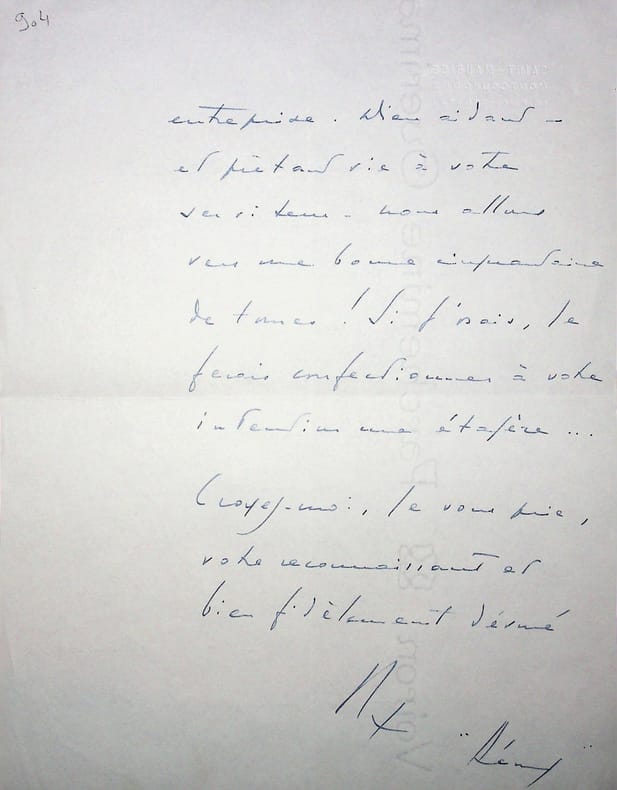 904
entreprise. Dieu aidant -
et prêtant vie à votre
serviteur - nous allons
vers une bonne cinquantaine
de tomes ! Si j'osais, je
ferais confectionner à votre
intention une étagère ...
Croyez-moi, je vous prie,
votre reconnaissant et
bien fidèlement dévoué
"Rémy"